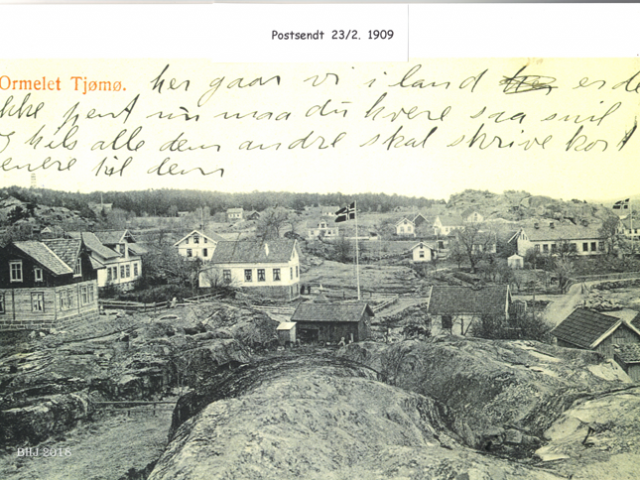 Postsendt 23/2, 1909
Ormelet Tjømø.
her gaar vi i land her er de
ikke pent nu maa du hvere saa snil
og hils alle dem andre skal skrive kort
senere til dem
BHJ 2018